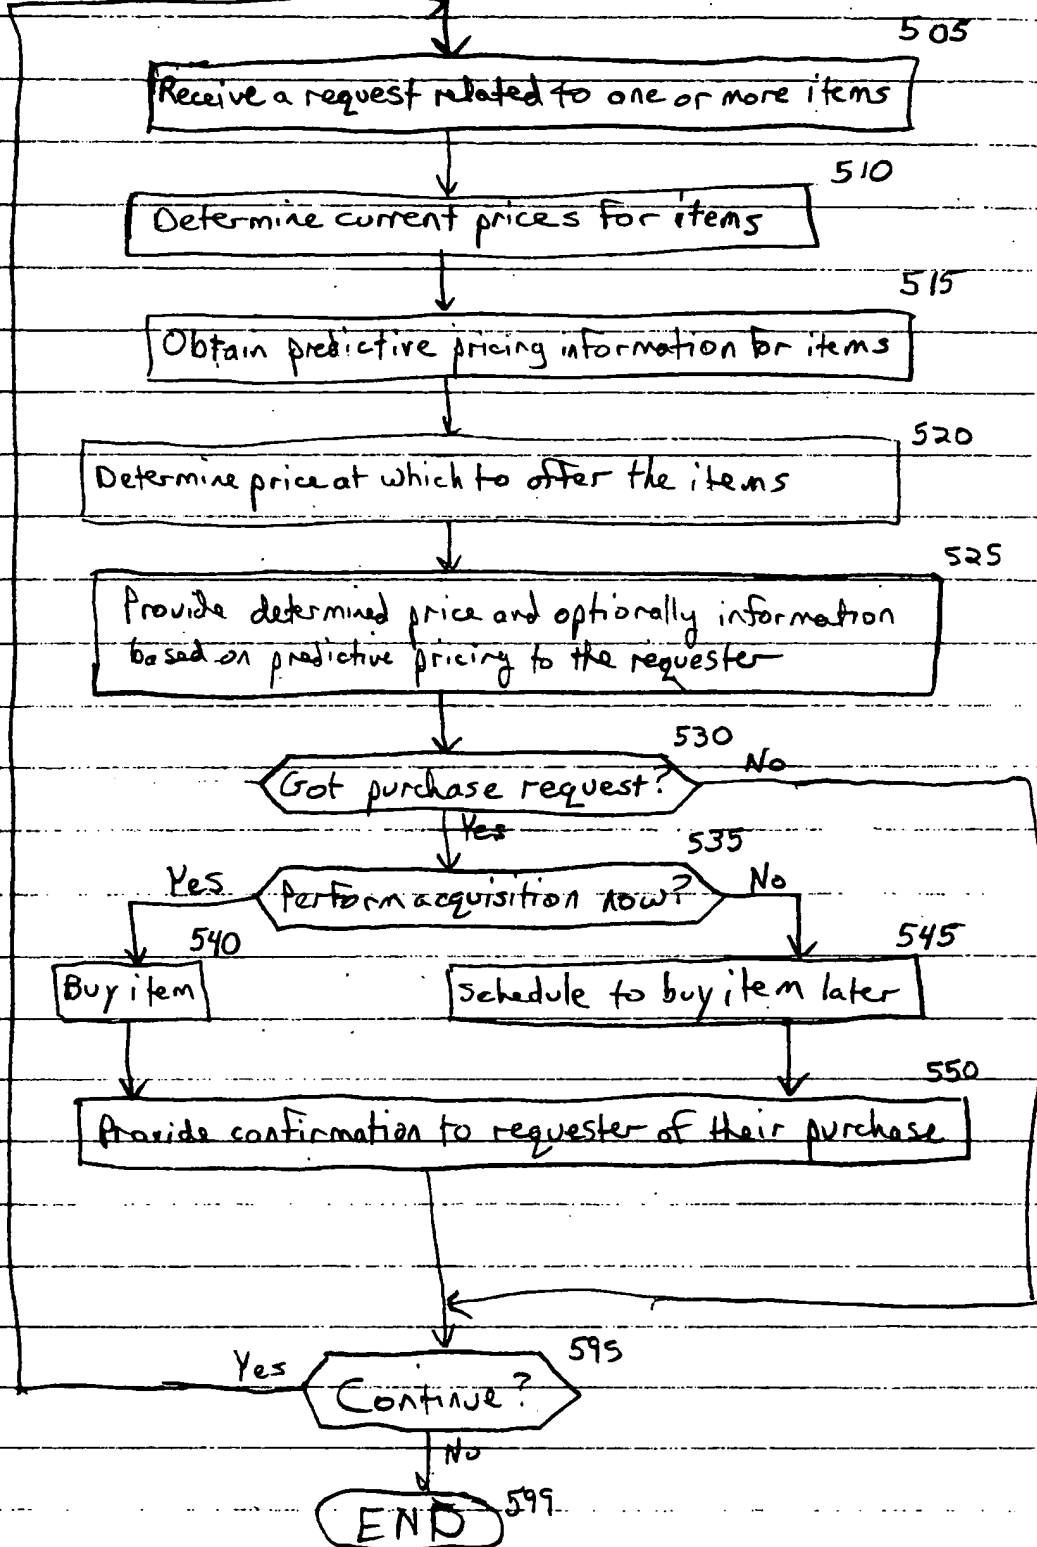 505
Receive a request related to one or more items
510
Determine current prices for items
515
Obtain predictive pricing information for items
520
Determine price at which to offer the items
525
Provide determined price and optionally information
based on predictive pricing to the requester
530
Got purchase request?
No
Yes
535
Perform acquisition now?
Yes
No
540
545
Buy item
Schedule to buy item later
550
Provide confirmation to requester of their purchase
595
Yes
Continue?
No
599
END